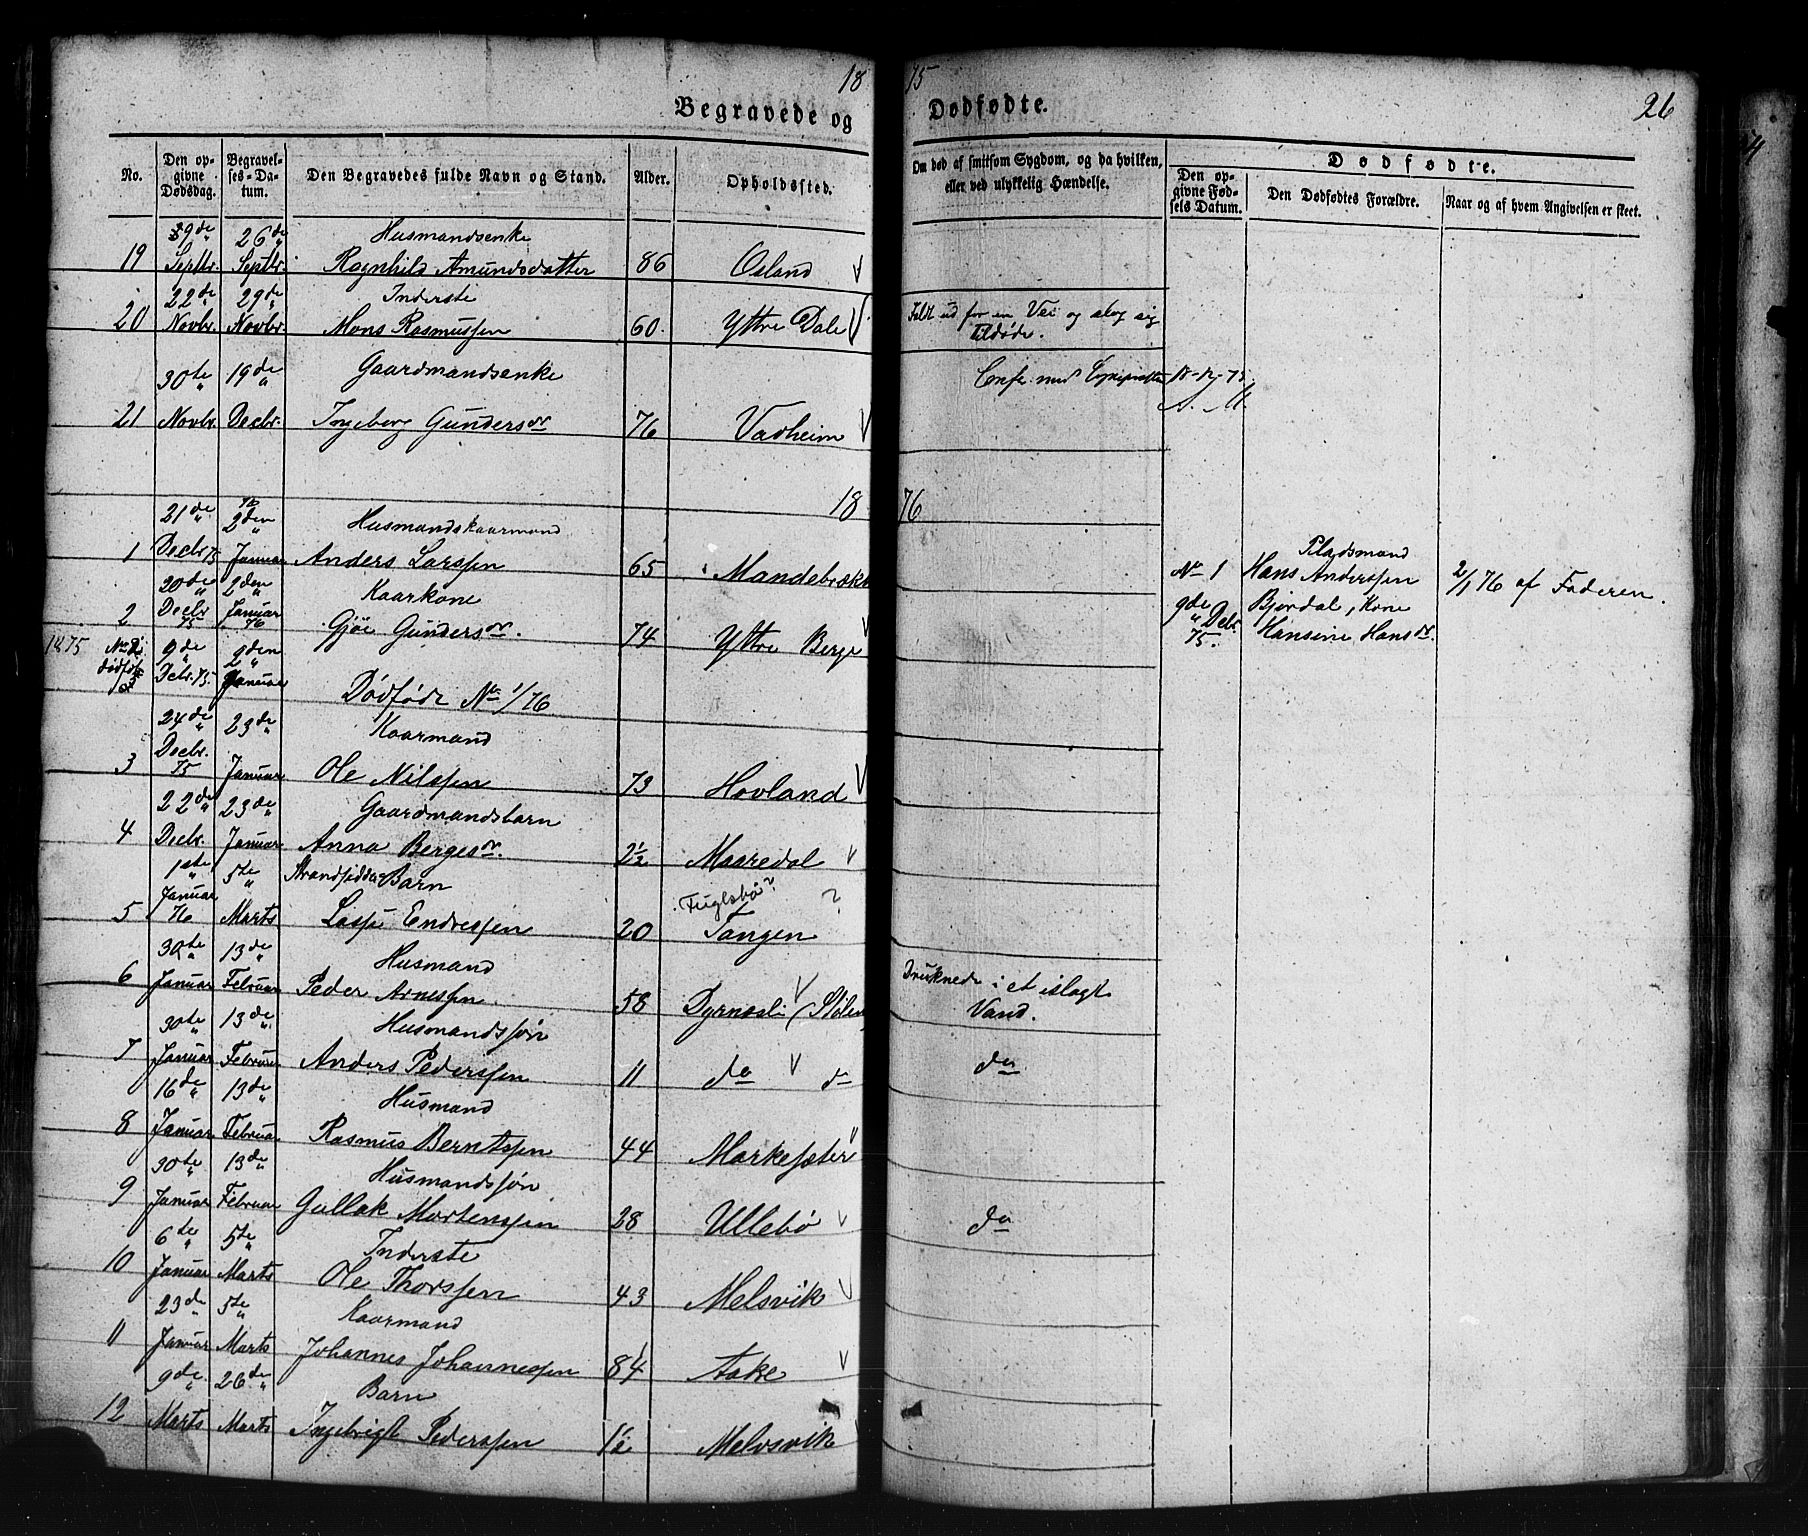 18 75
26
Begravede og Dødfødte.
No.
Den opgivne Dødsdag.
Begravelses-Datum.
Den Begravedes fulde Navn og Stand.
Alder.
Opholdssted.
Om død af smitsom Sygdom, og da hvilken, eller ved ulykkelig Hændelse.
Dødfødte.
Den opgivne Fødsels Datum.
Den Dødfødtes Forældre.
Naar og af hvem Angivelsen er skeet.
9de 26de Husmandsenke
19 Septbr. Septbr. Ragnhild Amundsdatter 86 Osland
22de 29de Inderste
20 Novbr. Novbr. Mons Rasmussen 60. Yttre Dale Faldt ud for en Vei og slog sig
tildøde.
30te 19de Gaardmandsenke
Conf. med 18-12-75
21 Novbr. Decbr. Ingeborg Gundersdr 76 Vadheim
18 76
21de 2den Husmandskaarmand
1 Decbr 75 Januar Anders Larssen 65 Mandebrække
20de 2den Kaarkone
2 Decbr 75 Januar 76 Gjøe Gundersdr. 74 Yttre Berge
No 1 Pladsmand
Hans Anderssen 2/1 76 af Faderen.
9de Decbr. 75. Bjordal, Kone
Hansine Hansdr.
1875 9de 2den
Decbr. 75. Januar Dødfødt No 1/76
24de 23de Kaarmand
3 Decbr. 75 Januar Ole Nilssen 73 Hovland
22de 23de Gaardmandsbarn
4 Decbr. Januar Anna Bergesdr. 2½ Maaredal
1ste 5te Strandsidder Barn Fuglebø? ?
5 Januar 76 Marts Lasse Endressen 20 Tangen
30te 13de Husmand
6 Januar Februar Peder Arnessen 58 Dyrnesli (Stølen Druknede i et islagt
Vand.
30te 13de Husmandssøn
7 Januar Februar Anders Pederssen 11 do do do
16de 13de Husmand
8 Januar Februar Rasmus Berntssen 44 Markesæter
30te 13de Husmandssøn
9 Januar Februar Gullak Mortenssen 28 Ullebø do
6te 5te Inderste
10 Januar Marts Ole Thorssen 43 Melsvik
23de 5te Kaarmand
11 Januar Marts Johannes Johannessen 84 Aake
9de 26de Barn
12 Marts Marts Ingebrigt Pederssen 1½ Melvsvik